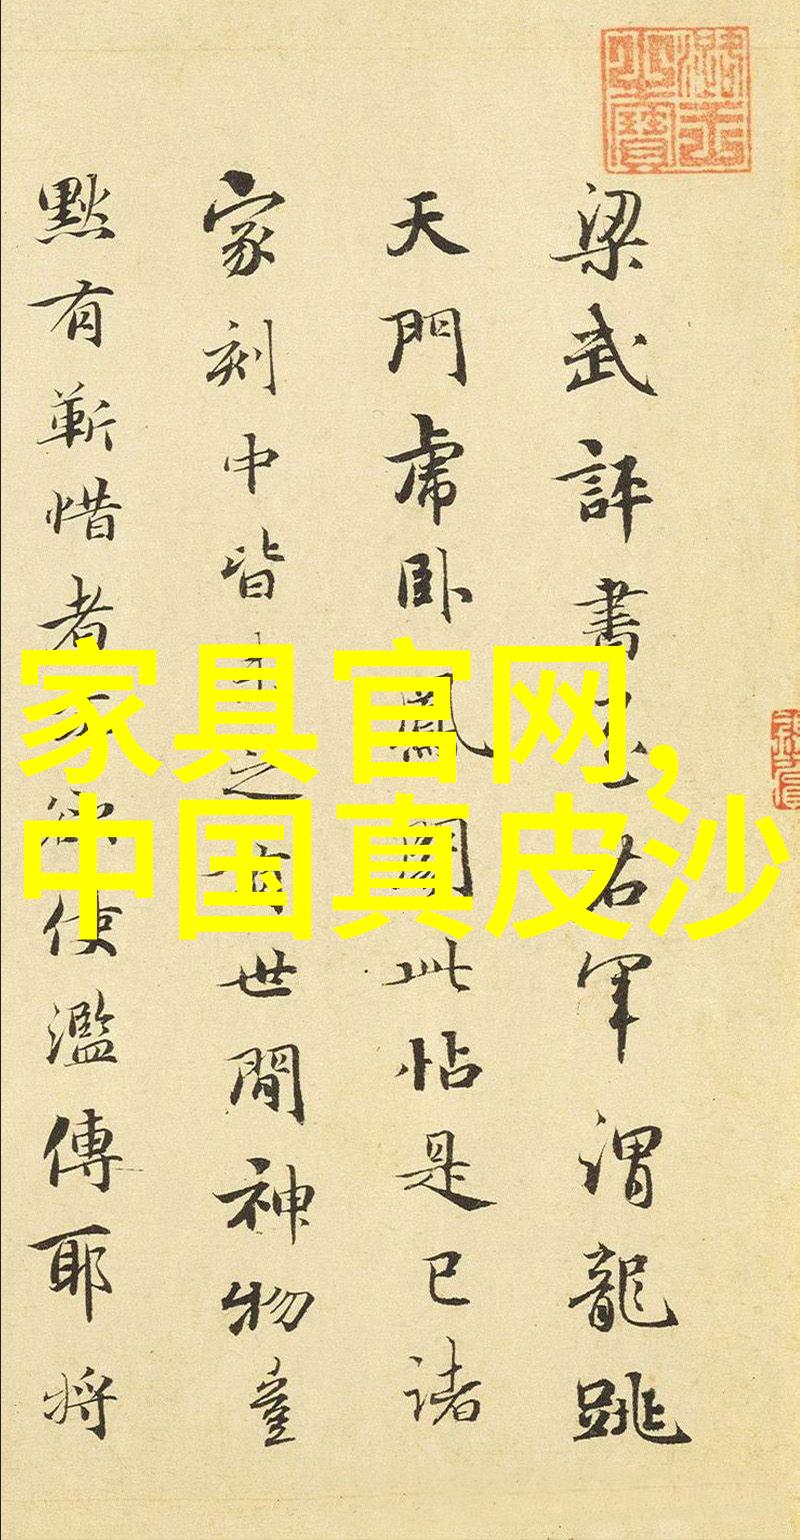 梁武評書至右軍謂龍跳
天門虎卧鳳閣此帖是已諸
家刻中皆未之有世間神物豈
黙有靳惜者不欲使濫傳耶將
家具官网,
中国真皮沙